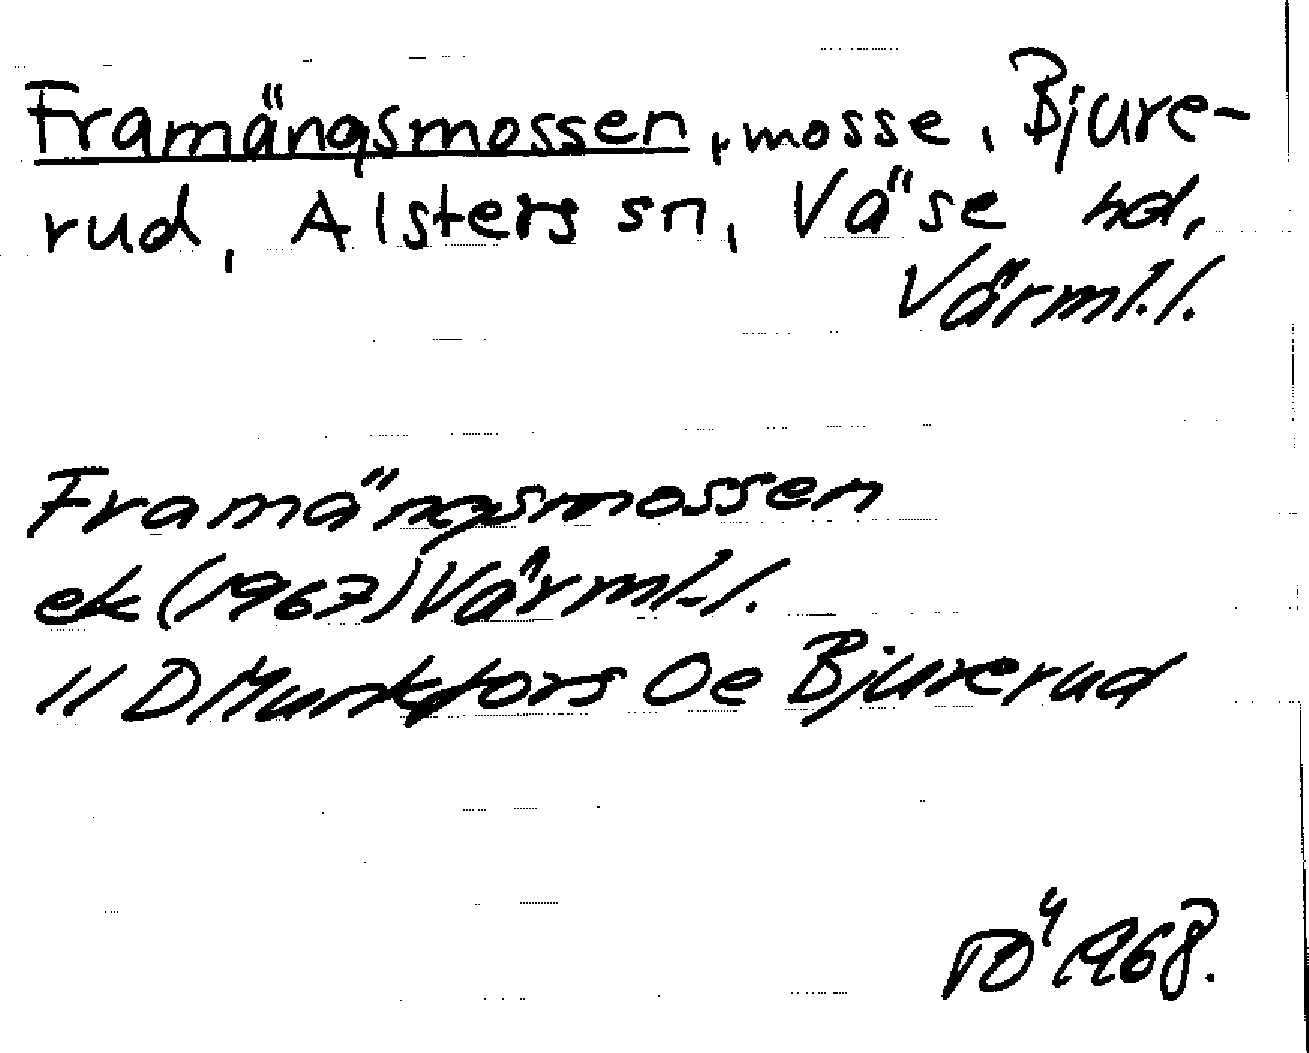 Framängsmossen, mosse, Bjure-
rud, Alsters sn, Väse hd,
Värml.l.
Framängsmossen
ek (1967) Värml.l.
11 D Munkfors Oe Bjurerud
TÖ 1968.